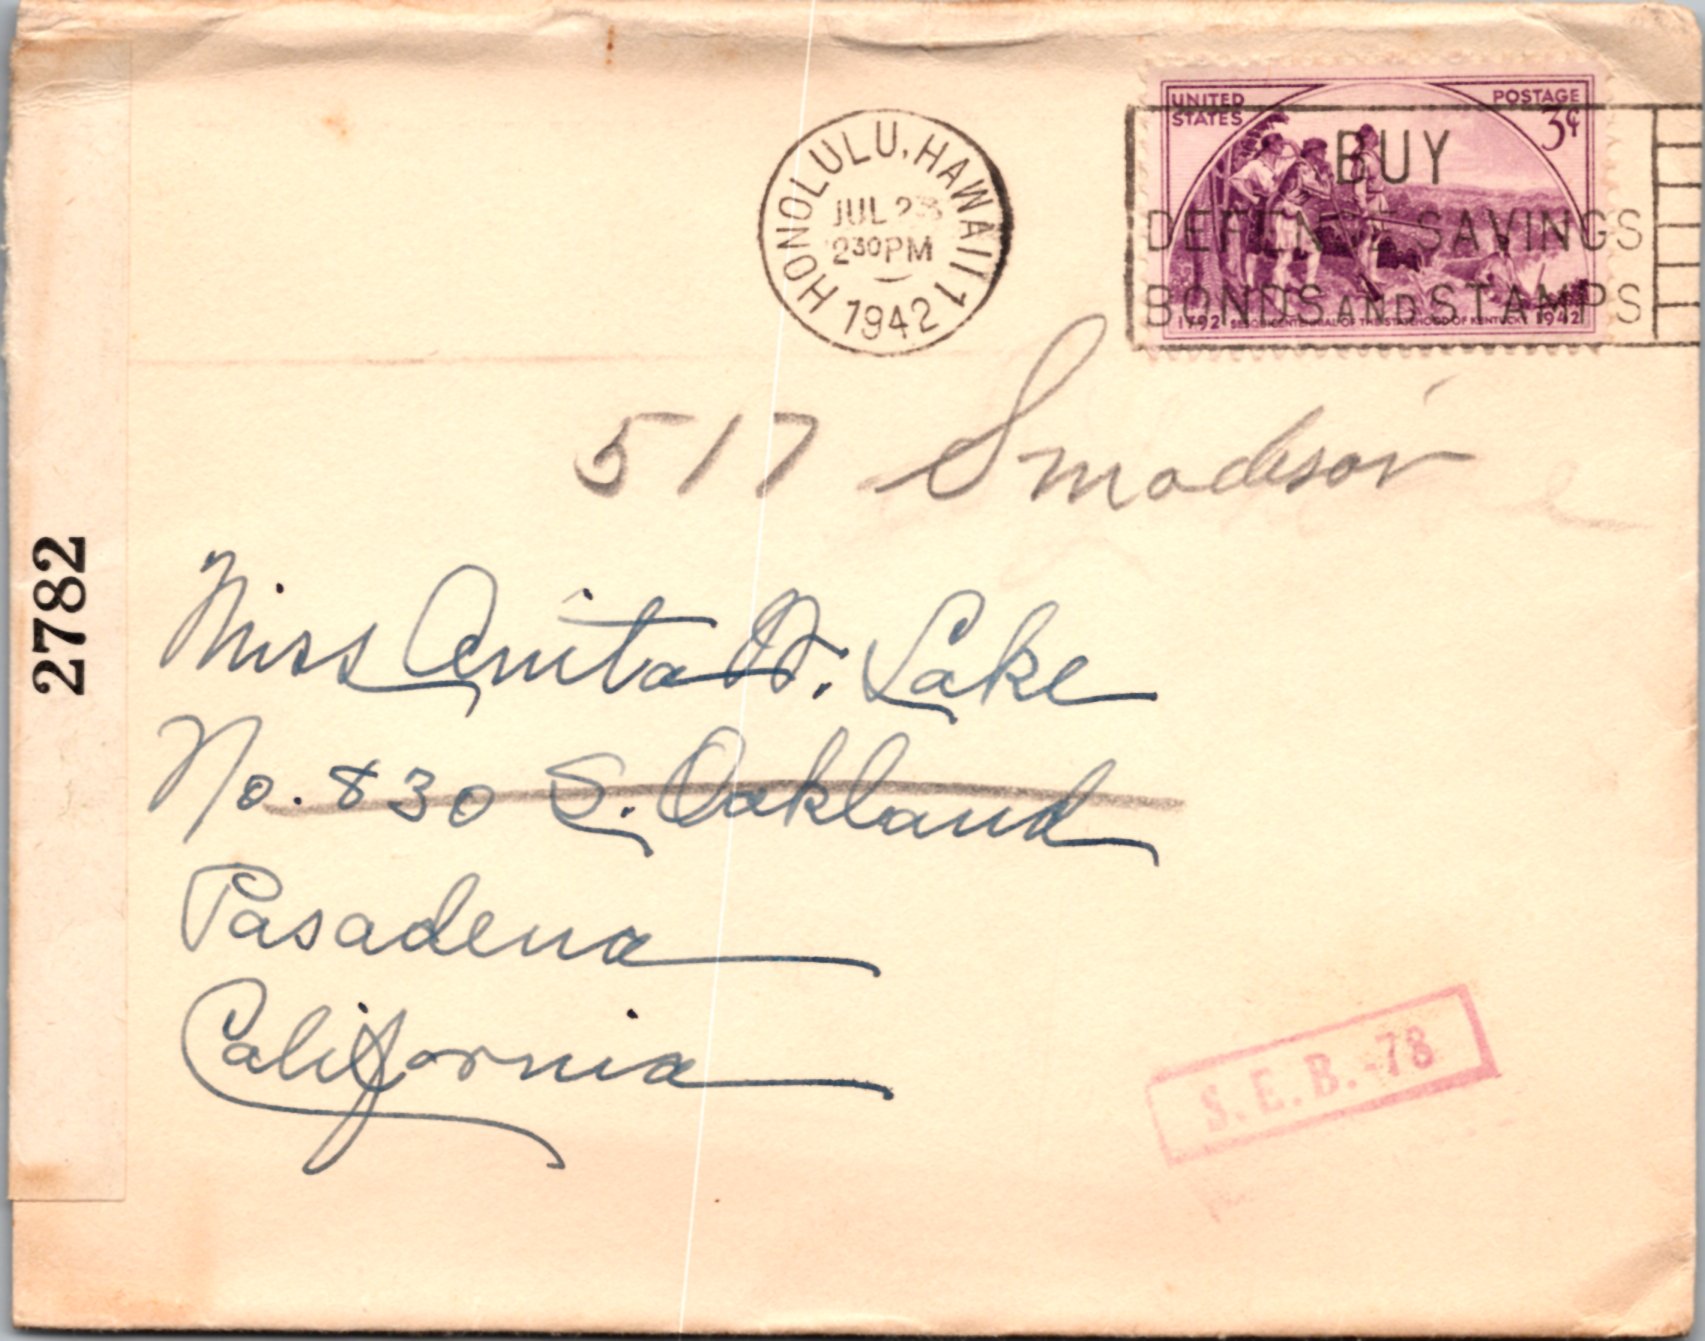 HONOLULU, HAWAII 1
JUL
230PM
1942
UNITED STATES
POSTAGE
3¢
1792 SESQUICENTENNIAL OF THE STATEHOOD OF KENTUCKY 1942
BUY
DEFENSE SAVINGS
BONDS AND STAMPS
517 S madison
Miss Anita Lake
No. 830 S. Oakland
Pasadena
California
2782
S.E.B.-78